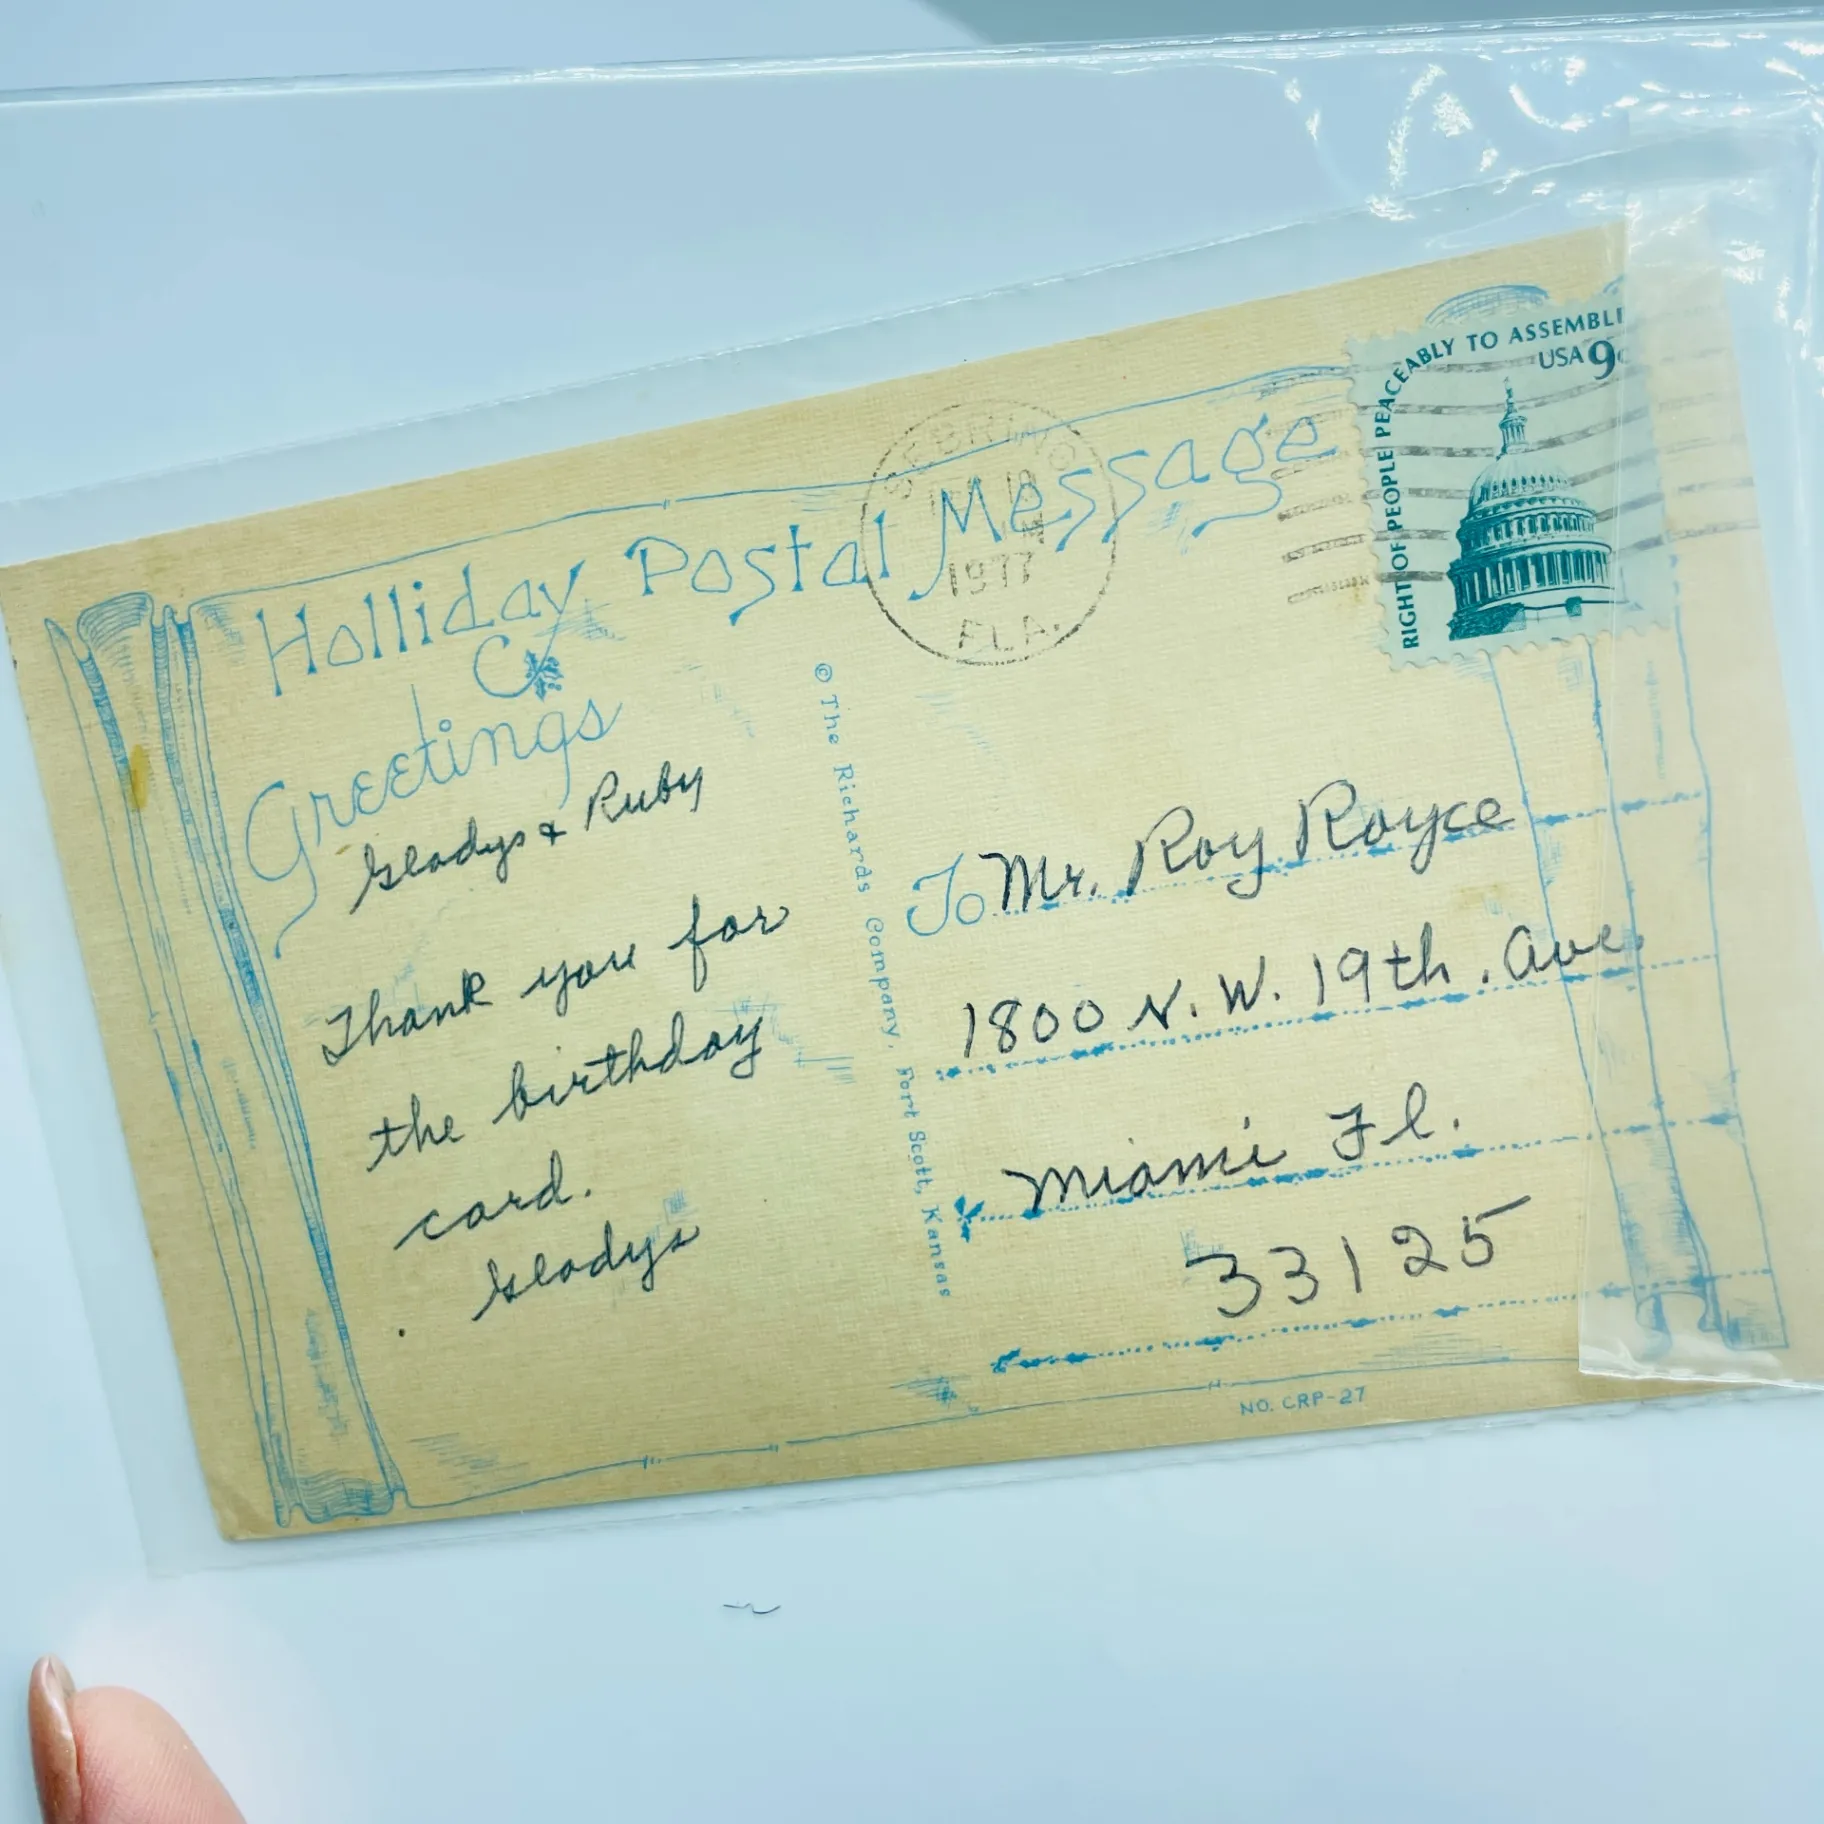 Holliday Postal Message
Greetings
Gladys & Ruby
Thank you for
the birthday
card.
Gladys
© The Richards Company, Fort Scott, Kansas
SEBRING
1977
FLA.
RIGHT OF PEOPLE PEACEABLY TO ASSEMBLE
USA 9c
To Mr. Roy Royce
1800 N.W. 19th. Ave.
Miami Fl.
33125
NO. CRP-27